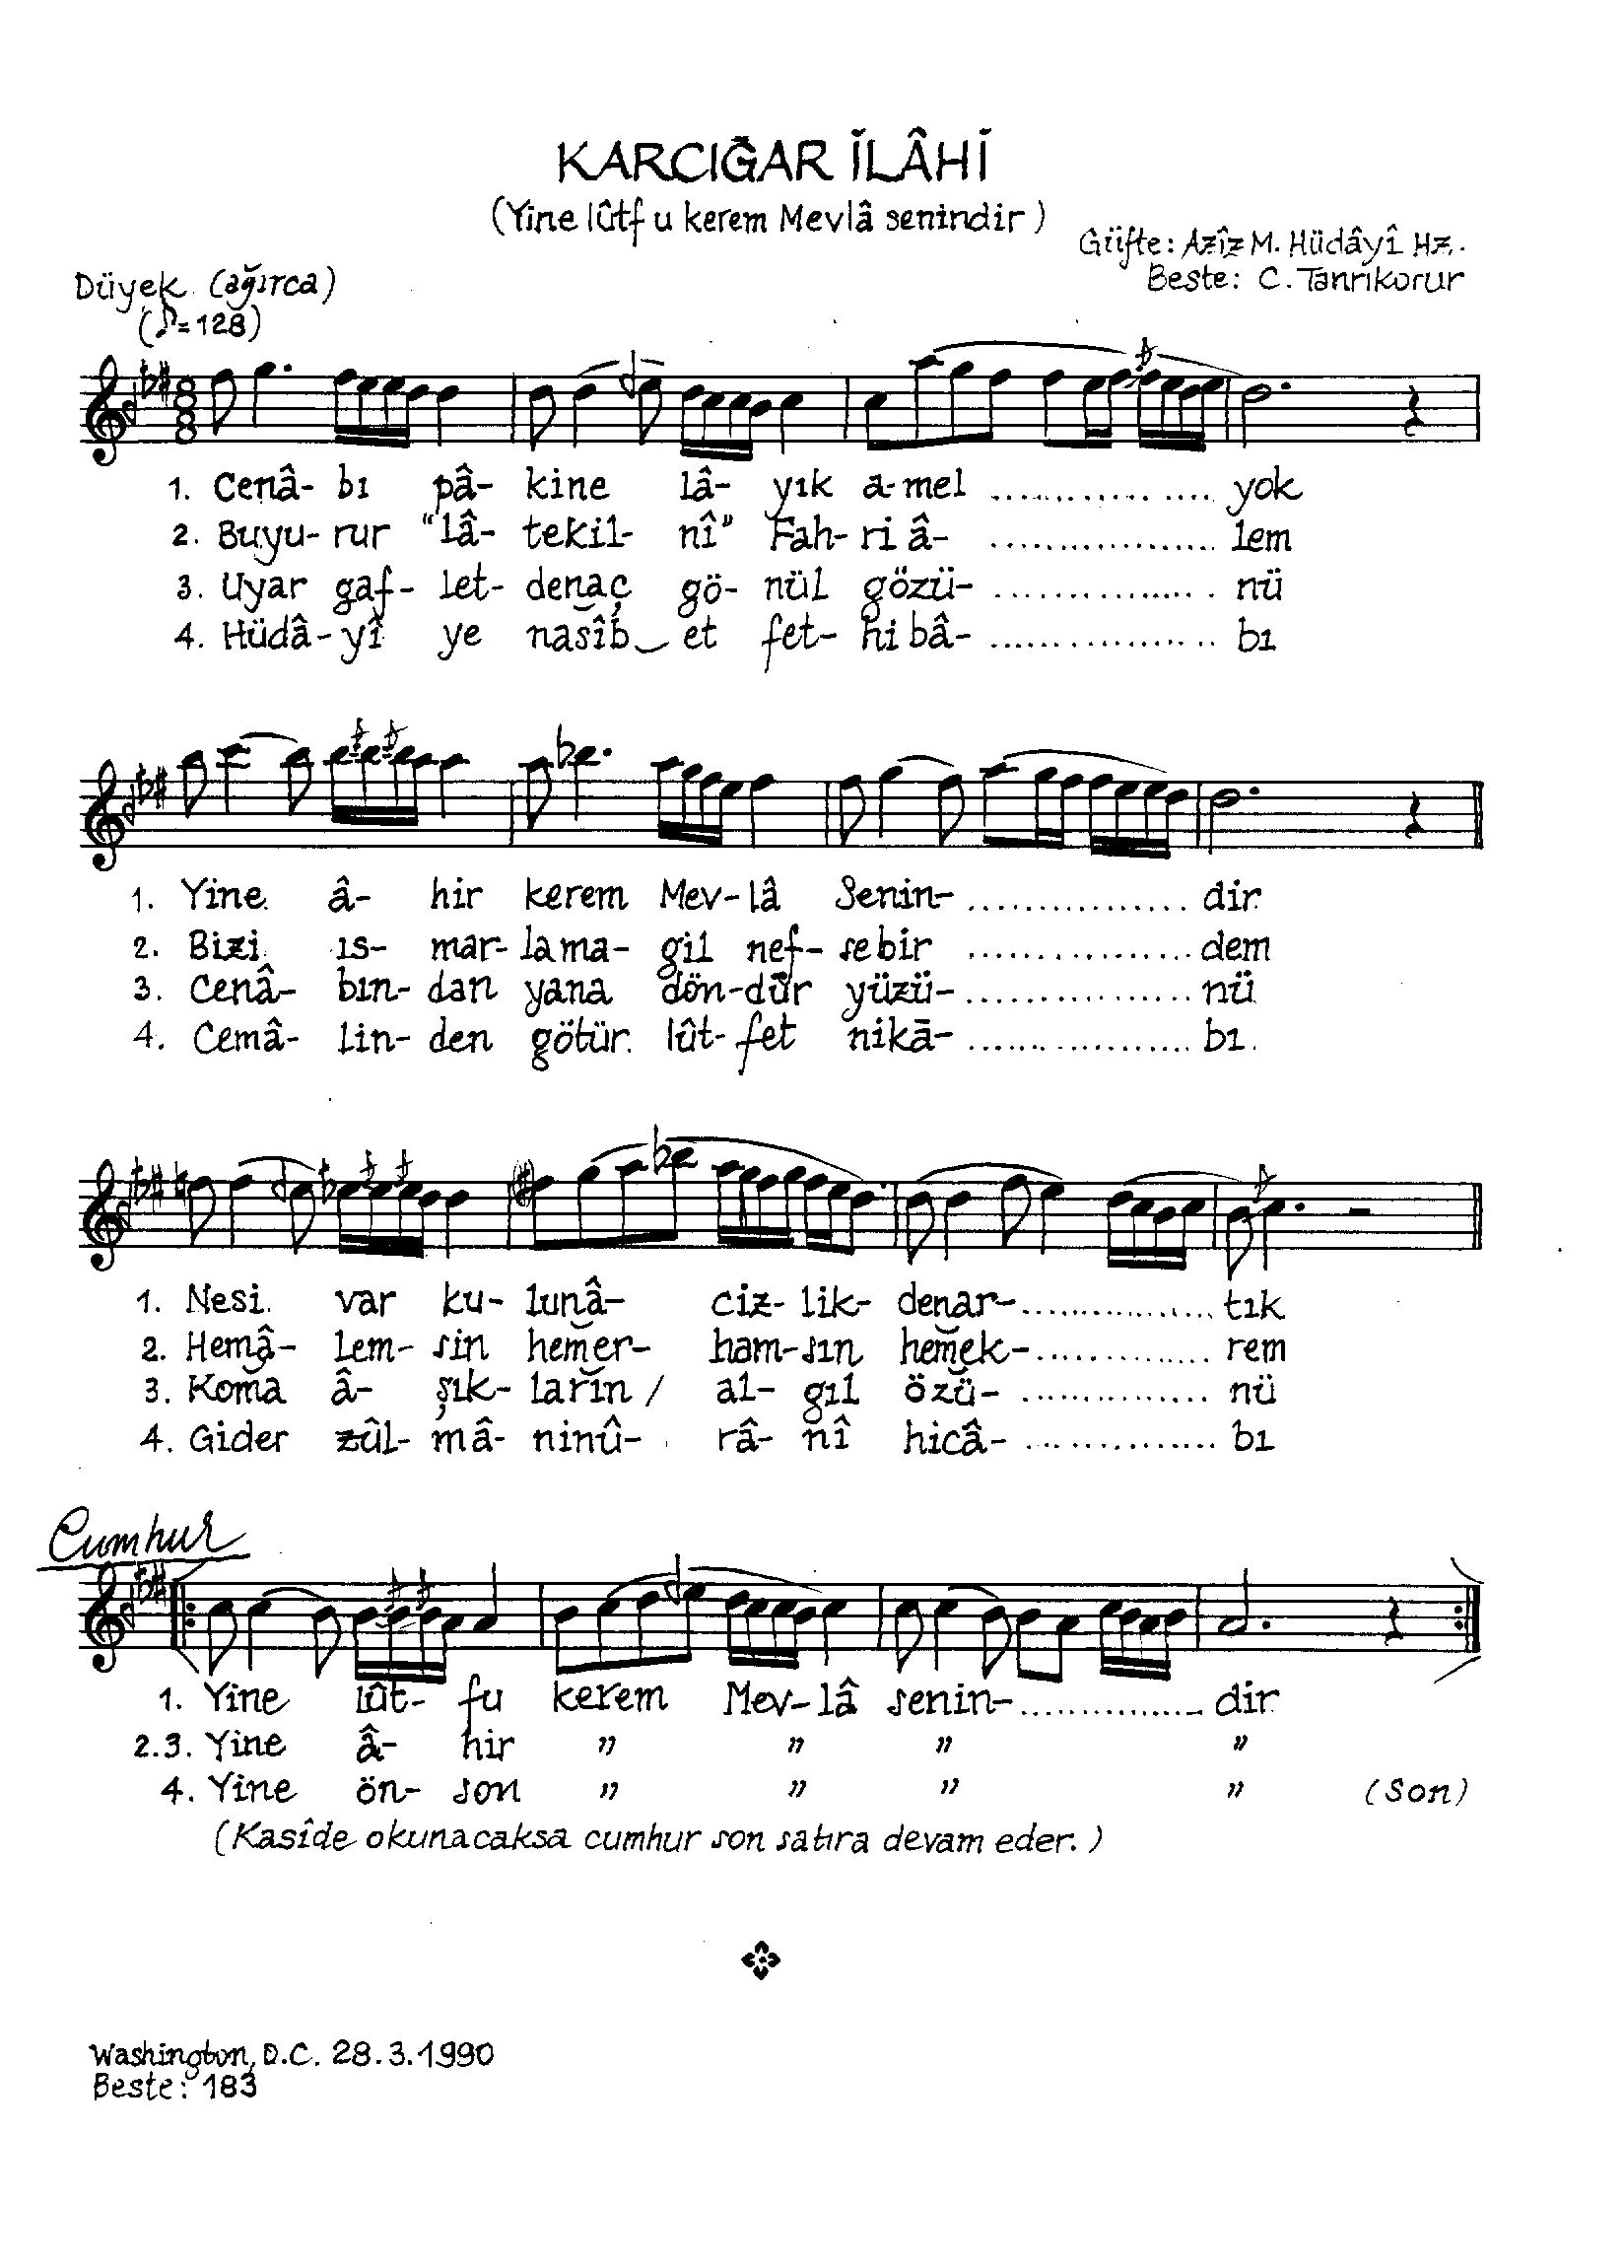 KARCIĞAR İLÂHİ
(Yine lûtf u kerem Mevlâ senindir)
Güfte: Azîz M. Hüdâyî Hz.
Beste: C. Tanrıkorur
Düyek (ağırca)
(♪=128)
1. Cenâ- bı pâ- kine lâ- yık a-mel .................. yok
2. Buyu- rur "lâ- tekil- nî" Fah- ri â- .................. lem
3. Uyar gaf- let- denaç gö- nül gözü- .................. nü
4. Hüdâ- yî ye nasîb et fet- hi bâ- .................. bı
1. Yine â- hir kerem Mev-lâ Senin- .................. dir
2. Bizi ıs- mar- lama- gil nef- se bir .................. dem
3. Cenâ- bın- dan yana dön-dür yüzü- .................. nü
4. Cemâ- lin- den götür lût- fet nikā- .................. bı
1. Nesi var ku- lunâ- ciz- lik- denar- .................. tık
2. Hemâ- lem- sin hemer- ham-sın hemek- .................. rem
3. Koma â- şık- ların / al- gıl özü- .................. nü
4. Gider zûl- mâ- ninû- râ- nî hicâ- .................. bı
Cumhur
1. Yine lût- fu kerem Mev-lâ senin- .................. dir
2.3. Yine â- hir " " " "
4. Yine ön- son " " " " (Son)
(Kasîde okunacaksa cumhur son satıra devam eder.)
Washington, D.C. 28.3.1990
Beste: 183